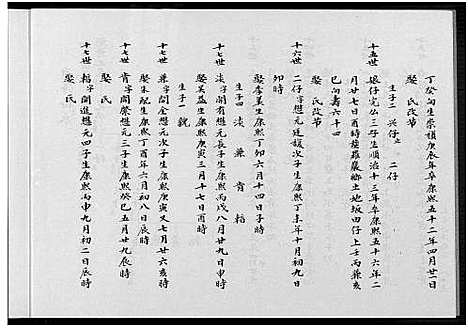 丁癸向生崇禎庚辰年卒康熙五十二年四月廿一日
娶 氏改节
生子二 兴仔止 二仔
十五世
娘仔完公三子生順治十三年卒康熙五十六年二
月廿七日酉時葬羅裏鄉土地坂田仔上壬丙兼亥
巳向壽六十四
娶 氏改节
十六世
二仔字懋元廷援次子生康熙丁未年十月初九日
卯時
娶李美生康熙丁卯六月十四日子時
生子四 淡 兼 肯 稻
十七世
淡字開有懋元長子生康熙丙戌八月廿九日申時
娶吳益生康熙庚寅三月十七日酉時
十七世
兼字開金懋元次子生康熙庚寅又七月廿六亥時
娶朱配生康熙丁酉年六月初八日辰時
生子一 貌
十七世
肯字開榮懋元三子生康熙癸巳五月廿九辰時
娶 氏
十七世
稻字開進懋元四子生康熙丙申九月初二日辰時
娶 氏